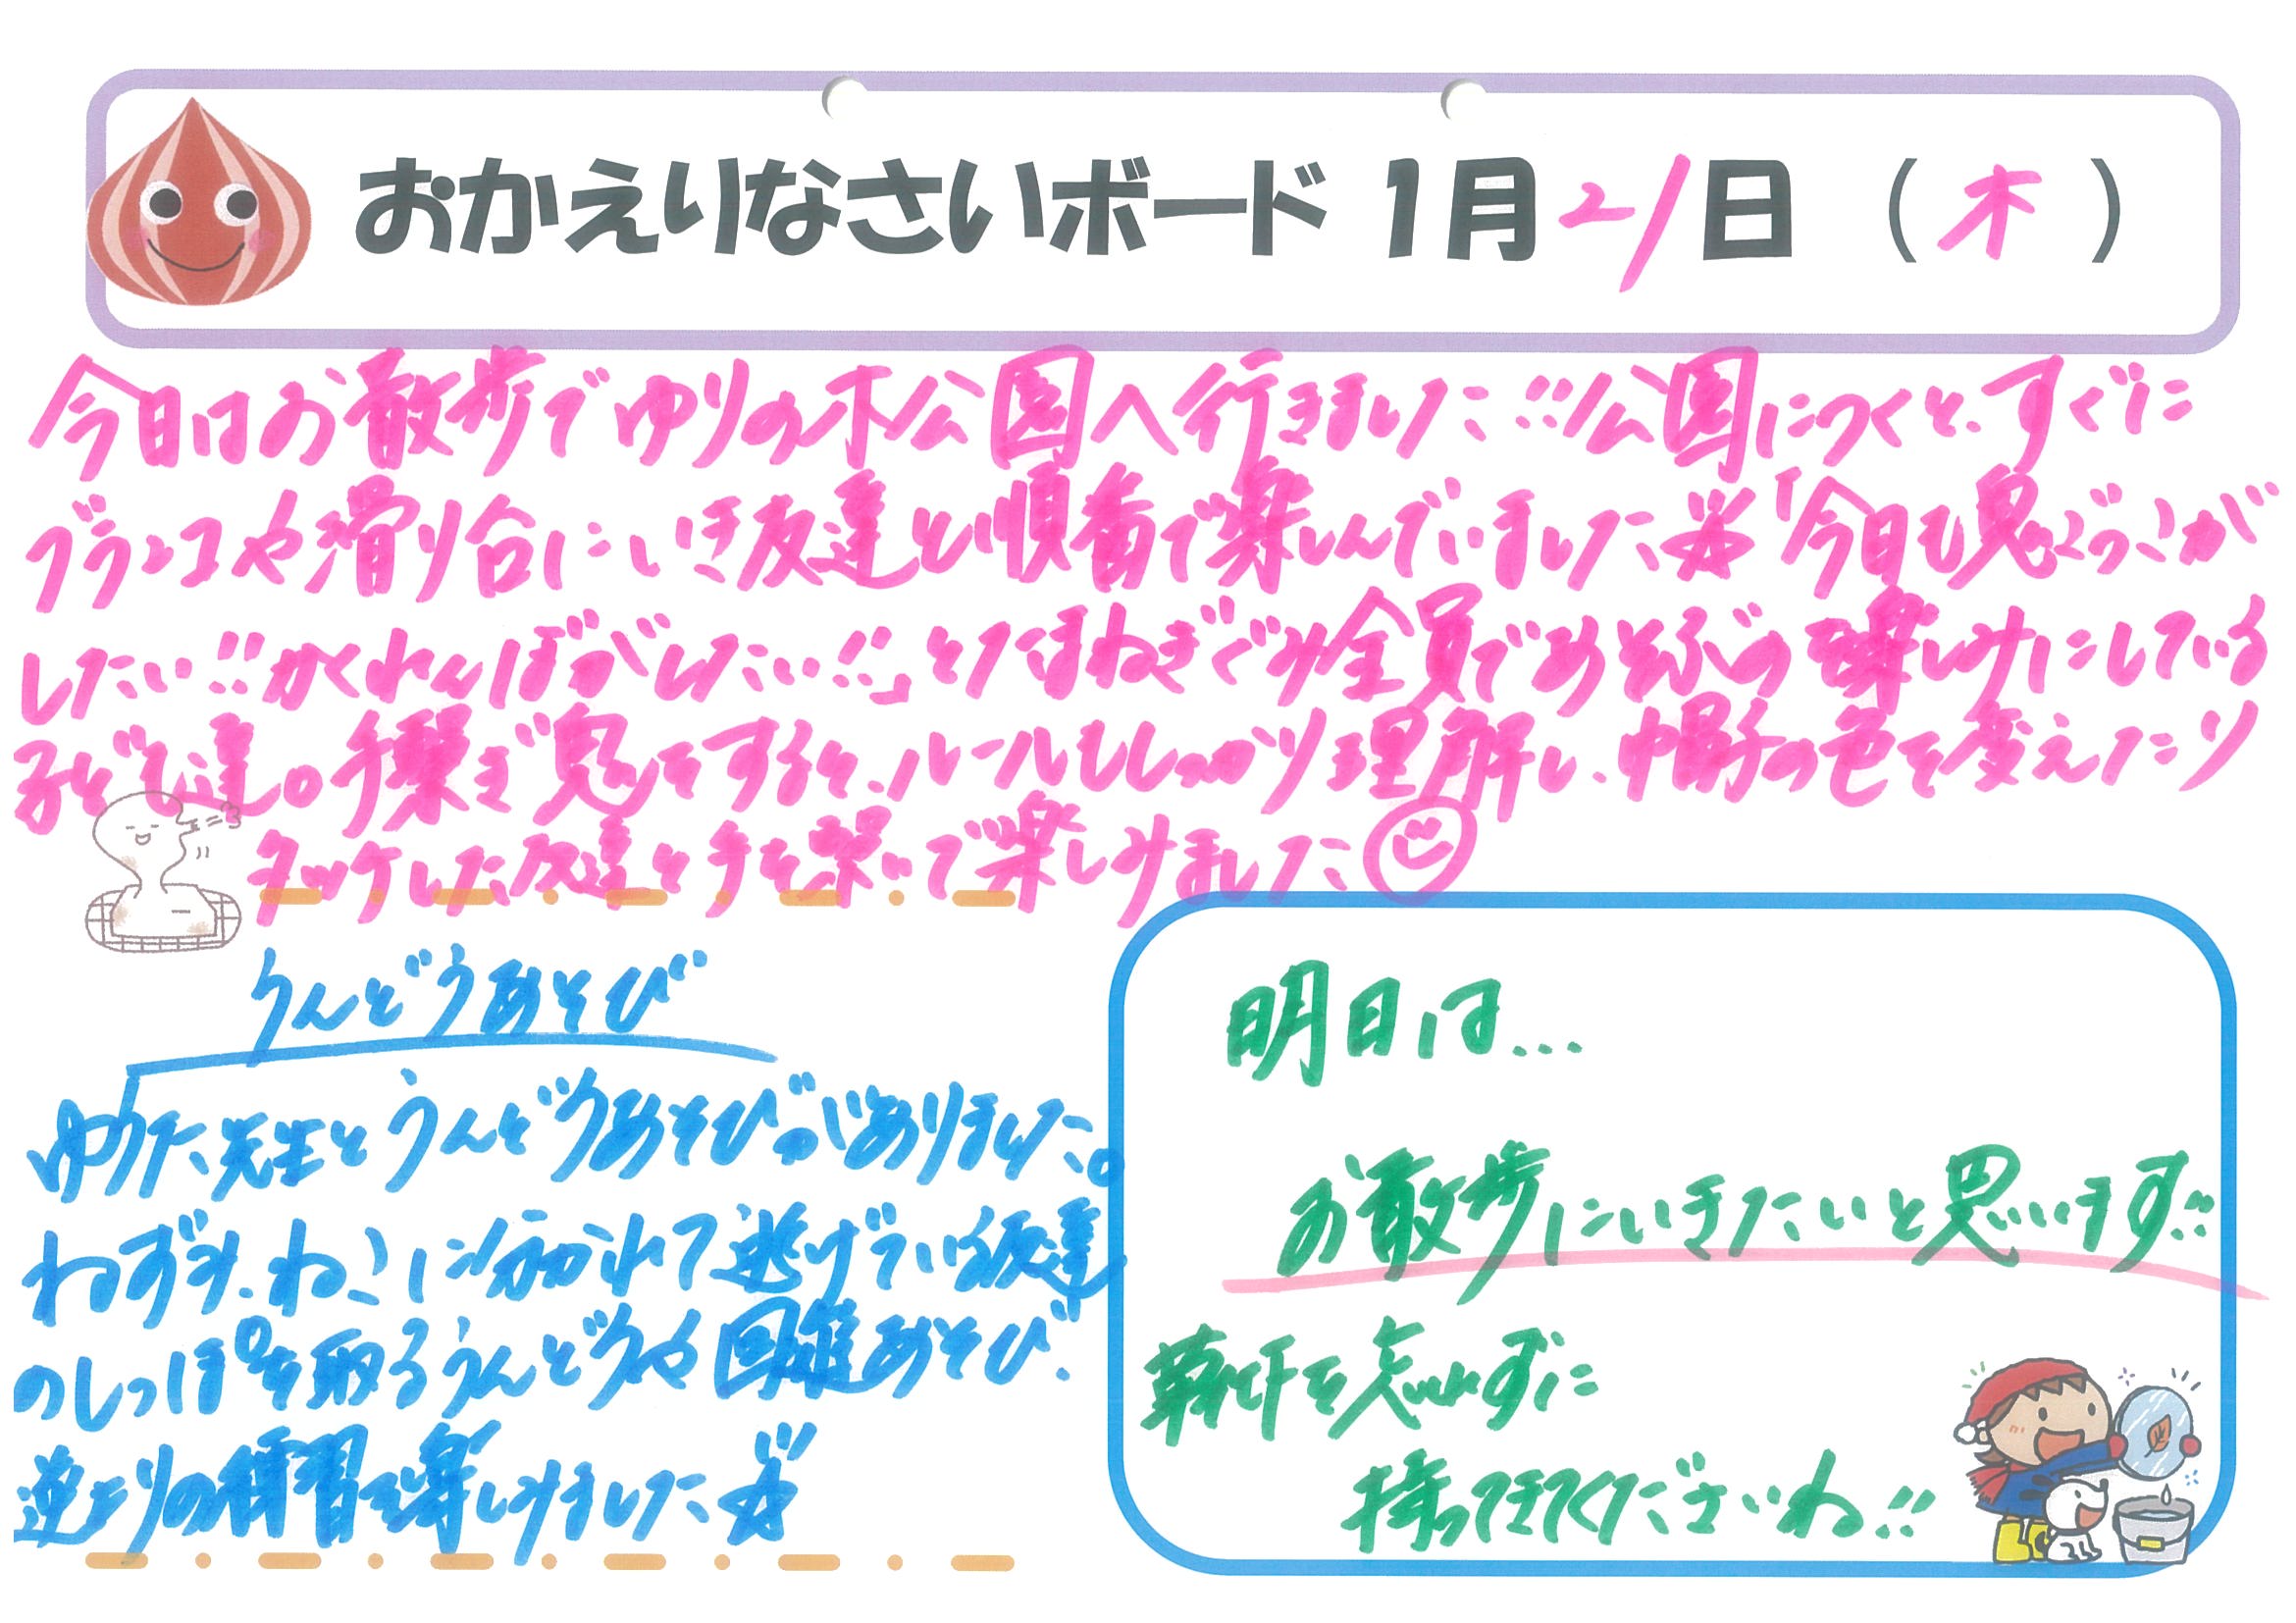 おかえりなさいボード 1月21日（木）
今日はお散歩でゆりの木公園へ行きました!!公園につくと、すぐに
ブランコや滑り台にいき友達と順番で楽しんでいました☆「今日も鬼ごっこが
したい!!かくれんぼがしたい!!」とたまねぎぐみ全員であそぶのを楽しみにしている
子ども達。手繋ぎ鬼をすると、ルールもしっかり理解し、帽子の色を変えたり
タッチした友達と手を繋いで楽しみました
うんどうあそび
ゆうた先生とうんどうあそびがありました。
ねずみ、ねこに分かれて逃げている友達
のしっぽを取るうんどうや回避あそび、
逆上りの練習を楽しみました☆
明日は...
お散歩にいきたいと思います!!
靴下を忘れずに
持ってきてくださいね!!